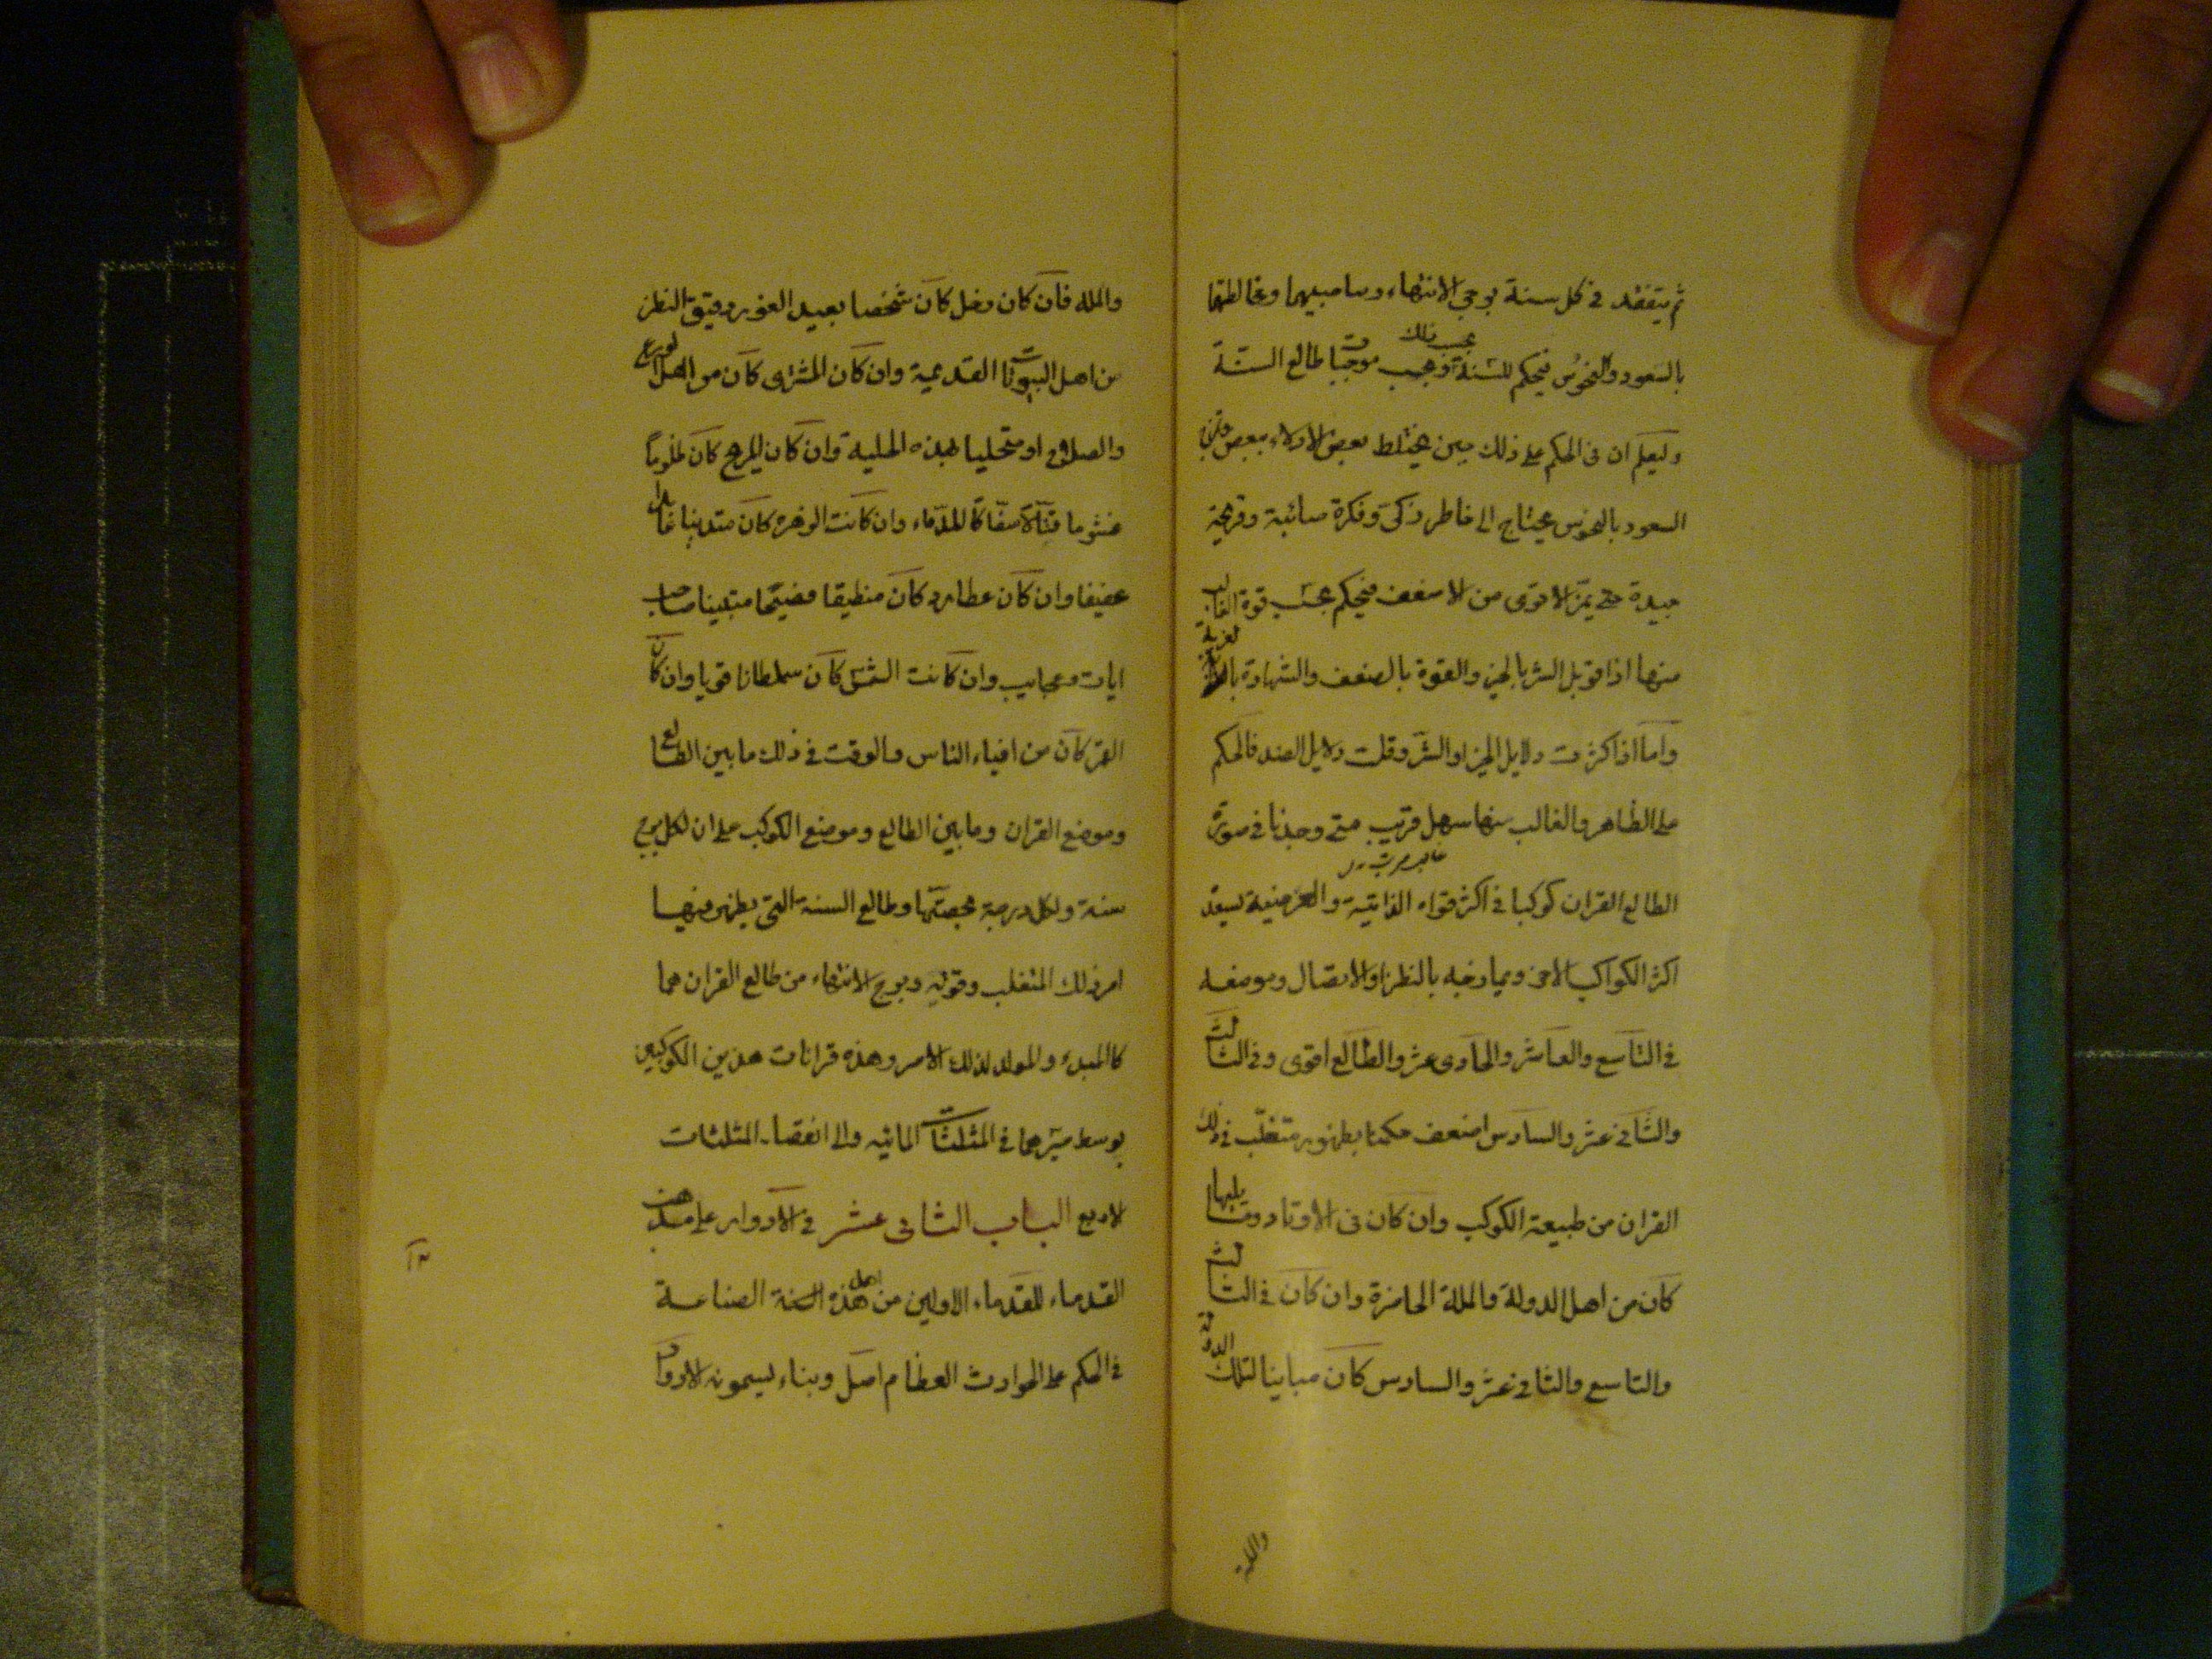 ثم يتفقد في كل سنة برجي الانتهاء وصاحبيهما ومخالطتهما
بالسعود والنحوس فيحكم للسنة بحسب ذلك وبحسب موجبات طالع السنة
وليعلم ان في الحكم على ذلك حين يختلط بعض الادلاء ببعض
السعود بالنحوس يحتاج الى خاطر زكي وفكرة صائبة وقريحة
جيدة حتى يميز الاقوى من الاضعف فيحكم بحسب قوة الغالب
منهما اذا قوبل الشر بالخير والقوة بالضعف والشهادة بالغربة
واما اذا كثرت دلايل الخير او الشر وقلت دلايل الضد فالحكم
على الظاهر والغالب منها سهل قريب متى وجدنا في صورة
الطالع القران كوكبا في اكثر قواه الذاتية والعرضية يسعد
اكثر الكواكب الاخر ويمازجه بالنظر او الاتصال وموضعه
في التاسع والعاشر والحادى عشر والطالع اقوى وفي الثالث
والثاني عشر والسادس اضعف حكمنا بظهور متغلب في ذلك
القران من طبيعة الكوكب وان كان في الاوتاد وما يليها
كان من اهل الدولة والملة الحاضرة وان كان في الثالث
والتاسع والثاني عشر والسادس كان مباينا لتلك الدولة
والملة
والمله فان كان زحل كان شخصا بعيد الغور دقيق النظر
من اهل البيوتات القديمية وان كان المشترى كان من اهل الورع
والصلاح او متحليا بهذه الحلية وان كان المريخ كان
غشوما قتالا سفاكا للدماء وان كانت الزهرة كان متدينا
عفيفا وان كان عطارد كان منطيقا فصيحا متبينا صاحب
ايات وعجايب وان كانت الشمس كان سلطانا قويا وان كان
القمر كان من افياء الناس والوقت في ذلك ما بين الطالع
وموضع القران وما بين الطالع وموضع الكوكب على ان لكل برج
سنة ولكل درجة بحصتها وطالع السنة التي يظهر فيها
امر ذلك المتغلب وقوته وبرج الانتهاء من طالع القران هما
كالمبدء والمولد لذلك الامر وهذه قرانات هذين الكوكبين
بوسط سيرهما في المثلثات المائيه والى انقضاء المثلثات
الاربع الباب الثاني عشر في الادوار على مذهب
القدماء للقدماء الاولين من اهل هذه الصناعة
في الحكم على الحوادث العظام اصل وبناء يسمونه الادوار